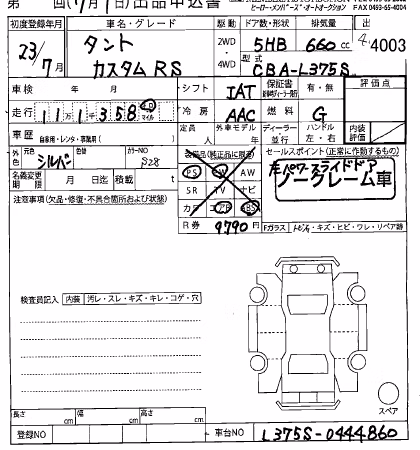 第 回(7月1日)出品申込書
ヒーロー・メンバーズ・オートオークション FAX 0493-65-4004
初度登録年月 車名・グレード 駆動 ドア数・形状 排気量 出
23/7月 タント カスタムRS 2WD 4WD 5HB 660cc 4003
型式 CBA-L375S
車検 年 月 シフト IAT 保証書 有・無 評価点
走行 111,358 km マイル 冷房 AAC 燃料 G
車歴 自家用・レンタ・事業用( ) 定員 人 外車モデル 年 ディーラー 並行 ハンドル 左・右 内装評価
外色 元色 シルバー 色替 カラーNO S28 装備品(純正品に限る) セールスポイント(正常に作動するもの)
名義変更期限 月 日迄 積載 t PS PW AW 左パワースライドドア
SR TV ナビ ノークレーム車
注意事項(欠品・修復・不具合箇所および状態) カワ エアB ABS
R券 9790円 Fガラス トビ石・キズ・ヒビ・ワレ・リペア跡
検査員記入 内装 汚レ・スレ・キズ・キレ・コゲ・穴
スペア
長さ cm 幅 cm 高さ cm
登録NO 車台NO L375S-0444860